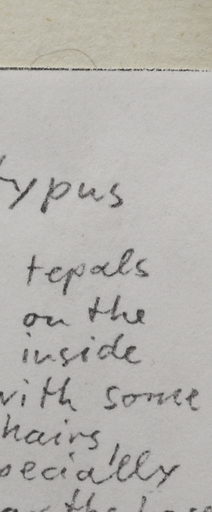 typus
tepals
on the
inside
with some
hairs,
pecially
the